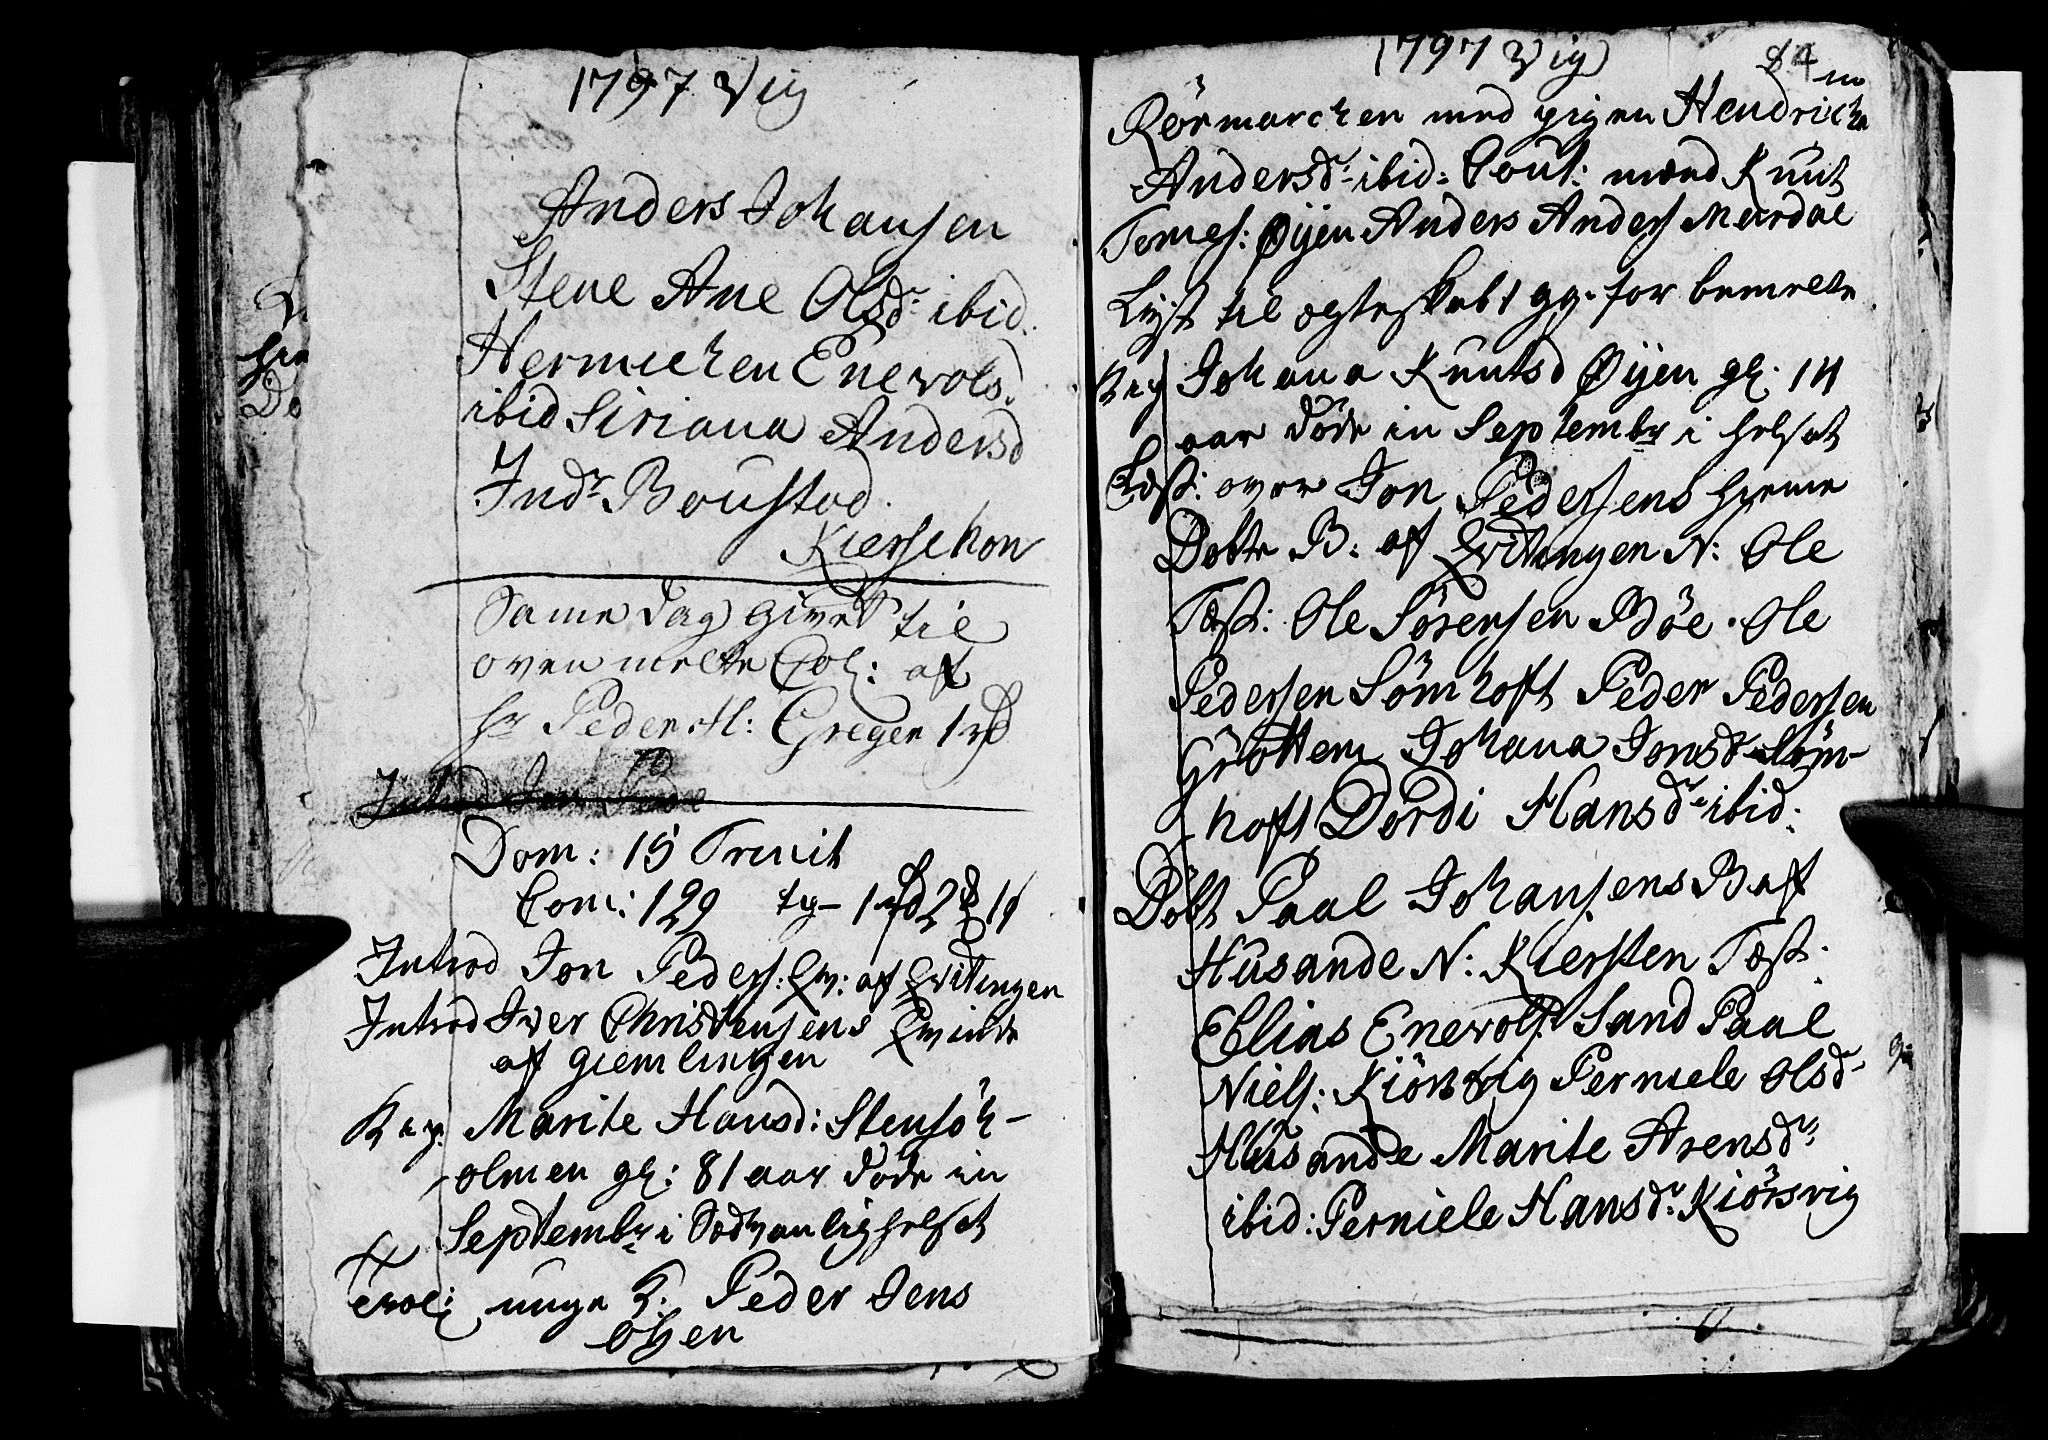 1797 Vig
Anders Johansen
Stene Ane Olsdr ibid.
Hermichen Enevols.
ibid Siriana Andersd
Indr Boustad.
Kierschou
Same Dag givet til
ovenmelte Col: af
hr Peder H: Greger 1 rd
Introd Jon
Dom: 15 Trinit
Com: 129 tg- 1 rd 2 11
Introd Jon Peders: Qv: af Qvitingen
Introd Iver Christensens Qvinde
af giemlingen
Beg. Marite Hansd: Stensöh-
olmen gl: 81 aar döde in
Septembr i Sædvanlig helset
Trol: unge K. Peder Jens
otzen
1797 Vig
84
Rörmarchen med pigen Hendricha
Andersdr ibid: Cout: mænd Knut
Tomes: Øijen Anders Anders Mardal
Lyst til egteskab 1 gg. for bemelte
Beg Johana Knutsd Øijen gl. 14
aar döde in Septembr i helset
Læst: over Jon Pedersens hieme
Döbte B: af Qvitingen N: Ole
Test: Ole Sörensen Böe. Ole
Pedersen Sömhoft Peder Pedersen
Gröttem Johana Jonsdr Söm-
hoft Dordi Hansdr ibid:
Döbt Paal Johansens B af
Husande N: Kiersten Test:
Elias Enevols: Sand Paal
Niels: Kiörsvig Perniele Olsdr
Husande Marite Arensdr
ibid: Perniele Hansdr Kiörsvig